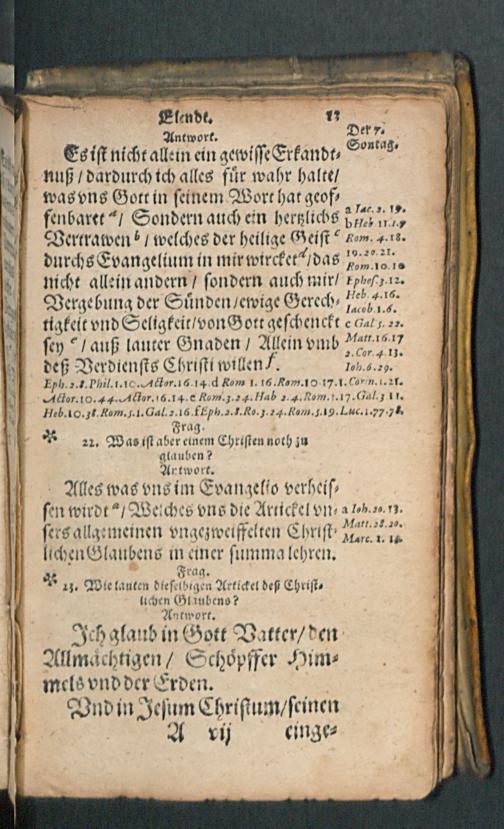 Elendt. 13
Der 7.
Sontag.
Antwort.
Es ist nicht allein ein gewisse Erkandt-
nuß / dardurch ich alles für wahr halte /
was vns Gott in seinem Wort hat geof-
fenbaret a / Sondern auch ein hertzlichs
Vertrawen b / welches der heilige Geist c
durchs Evangelium in mir wircket d / das
nicht allein andern / sondern auch mir /
Vergebung der Sünden / ewige Gerech-
tigkeit vnd Seligkeit / von Gott geschenckt
sey e / auß lauter Gnaden / Allein vmb
deß Verdiensts Christi willen f.
a Iac. 2. 19.
b Heb 11.1.7
Rom. 4. 18.
19. 20. 21.
Rom. 10. 10
Ephes. 3. 12.
Heb. 4. 16.
Iacob. 1. 6.
c Gal 5. 22.
Matt. 16. 17
2. Cor. 4. 13.
Ioh. 6. 29.
Eph. 2. 8. Phil. 1. 10. Actor. 16. 14. d Rom 1. 16. Rom. 10 17. 1. Corin. 1. 21.
Actor. 10. 44. Actor. 16. 14. e Rom. 3. 24. Hab 2. 4. Rom. 1. 17. Gal. 3 11.
Heb. 10. 38. Rom. 5. 1. Gal. 2. 16. f Eph. 2. 8. Ro. 3. 24. Rom. 5. 19. Luc. 1. 77. 78.
Frag.
22. Was ist aber einem Christen noth zu
glauben?
Antwort.
Alles was vns im Evangelio verheis-
sen wirdt a / Welches vns die Artickel vn-
sers allgemeinen vngezweiffelten Christ-
lichen Glaubens in einer summa lehren.
a Ioh. 20. 13.
Matt. 28. 20.
Marc. 1. 14.
Frag.
23. Wie lauten dieselbigen Artickel deß Christ-
lichen Glaubens?
Antwort.
Ich glaub in Gott Vatter / den
Allmächtigen / Schöpffer Him-
mels vnd der Erden.
Vnd in Jesum Christum / seinen
A xij einge-